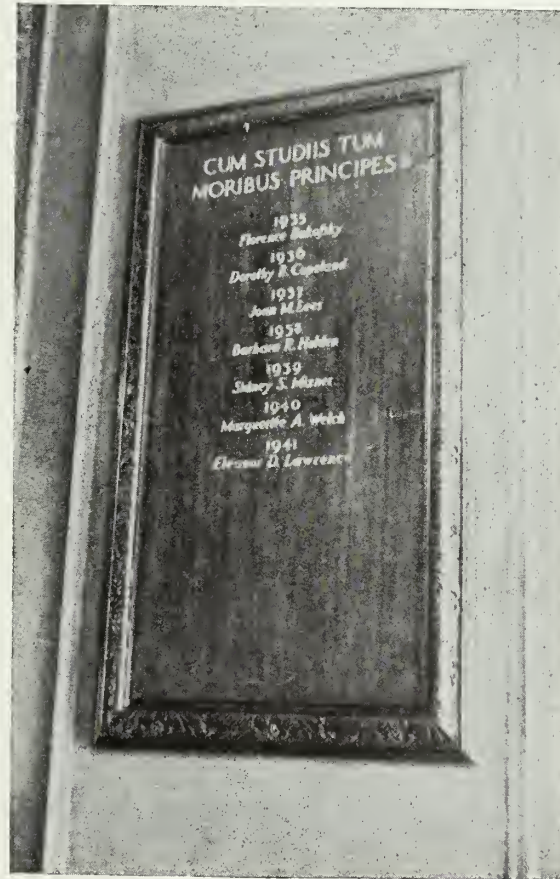 CUM STUDIIS TUM
MORIBUS PRINCIPES
1935
Florence
1936
Dorothy P. Copeland
1937
Joan M. Lees
1938
Barbara R. Holden
1939
Sidney S. Mizner
1940
Marguerite A. Welch
1941
Eleanor D. Lawrence